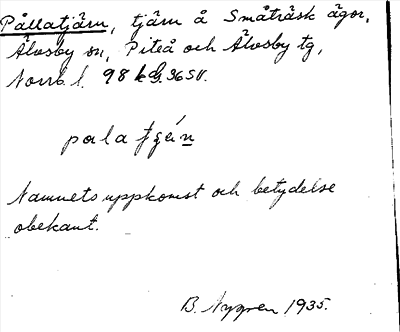 Pållatjärn, tjärn å Småträsk ägor,
Älvsby sn, Piteå och Älvsby tg,
Norrb. l. 98 k d. 36 SV.
pala tjęn
Namnets uppkomst och betydelse
obekant.
B. Nygren 1935.